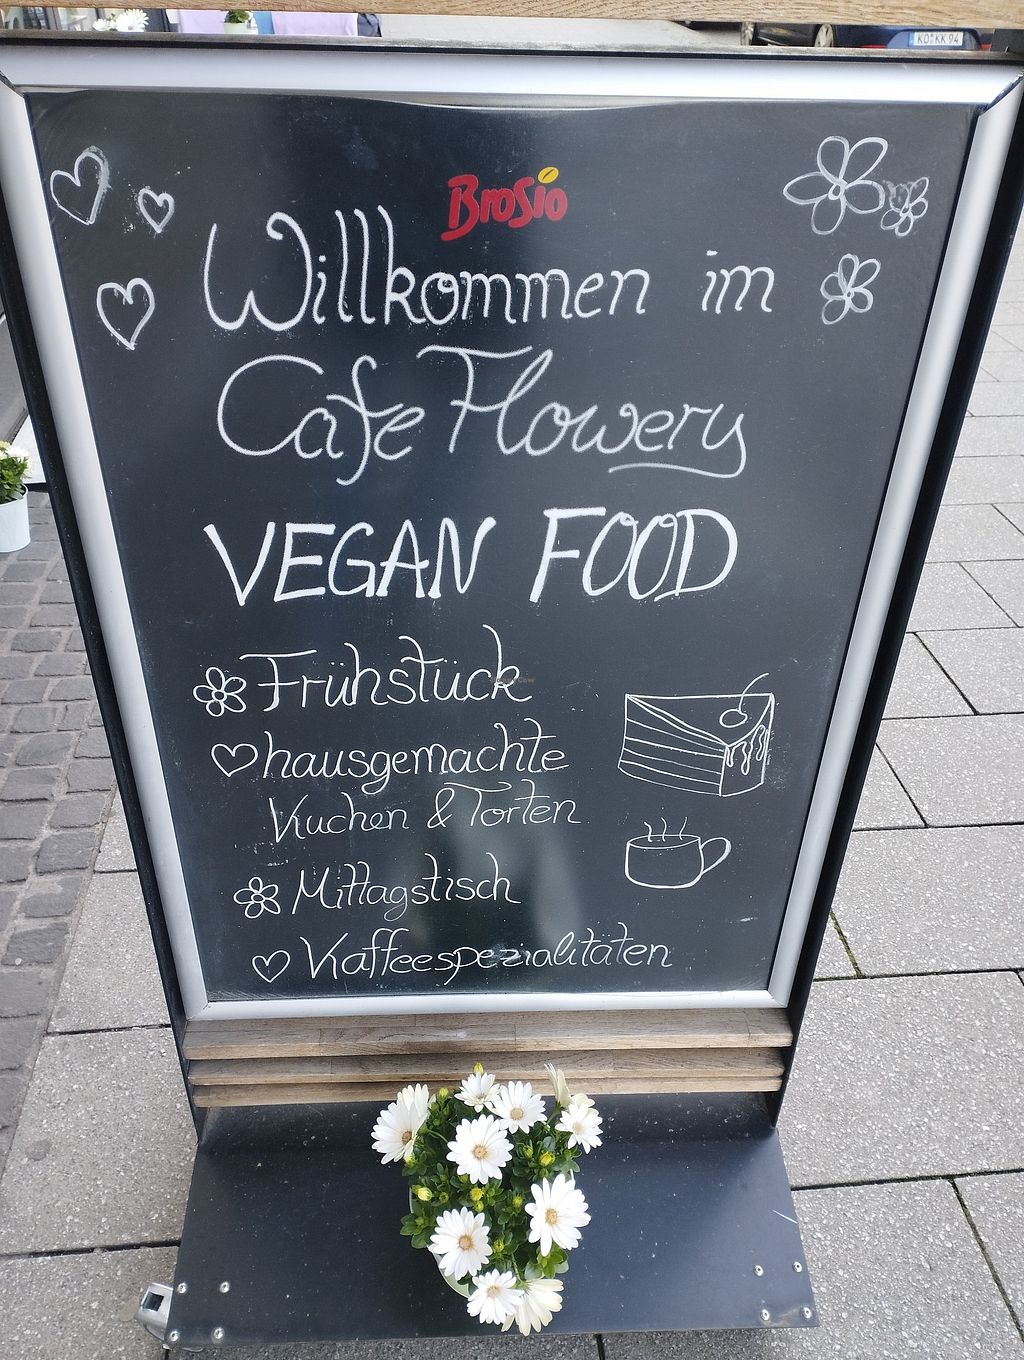 KO KK 94
BroSio
Willkommen im
Cafe Flowery
VEGAN FOOD
Frühstück
hausgemachte
Kuchen & Torten
Mittagstisch
Kaffeespezialitäten